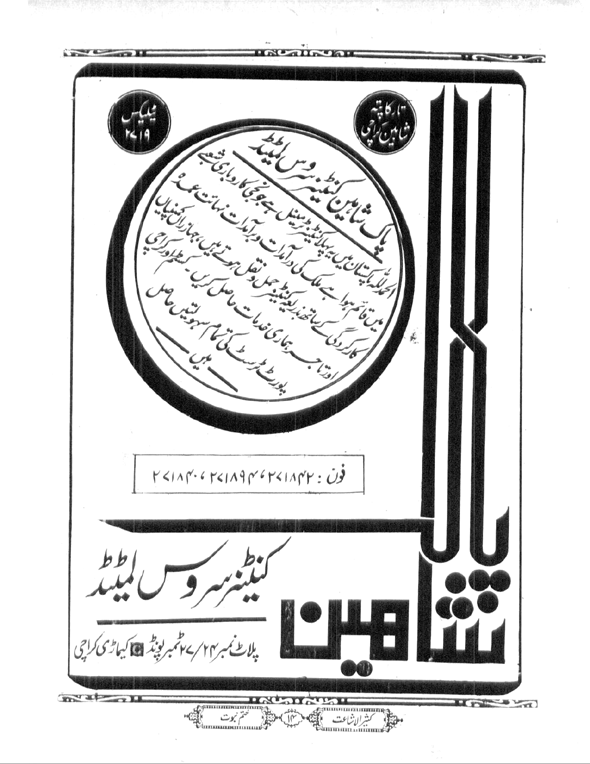 تار کا پتہ
شاہین کراچی
ٹیلیکس
۲۷۱۹
پاک شاہین کنٹینر سروس لمیٹڈ
الحمدللہ پاکستان میں یہ پہلا کنٹینر ٹرمینل ہے جو نجی کاروباری شعبے
میں قائم ہوا ہے ملک کی درآمدات و برآمدات نہایت عمدہ
کارکردگی کے ساتھ بذریعہ کنٹینر حمل و نقل ہوتے ہیں۔ جہاز راں کمپنیاں
اور تاجر ہماری خدمات حاصل کریں۔ کسٹم اور کراچی
پورٹ ٹرسٹ کی تمام سہولتیں حاصل
ہیں
فون : ۲۷۱۸۴۲، ۲۷۱۸۹۴، ۲۷۱۸۴۰
پاک
شاہین
کنٹینر سروس لمیٹڈ
پلاٹ نمبر ۲۷/۲۴ ٹمبر پونڈ کیماڑی کراچی
کثیر الاشاعت
۱۴
ختم نبوت